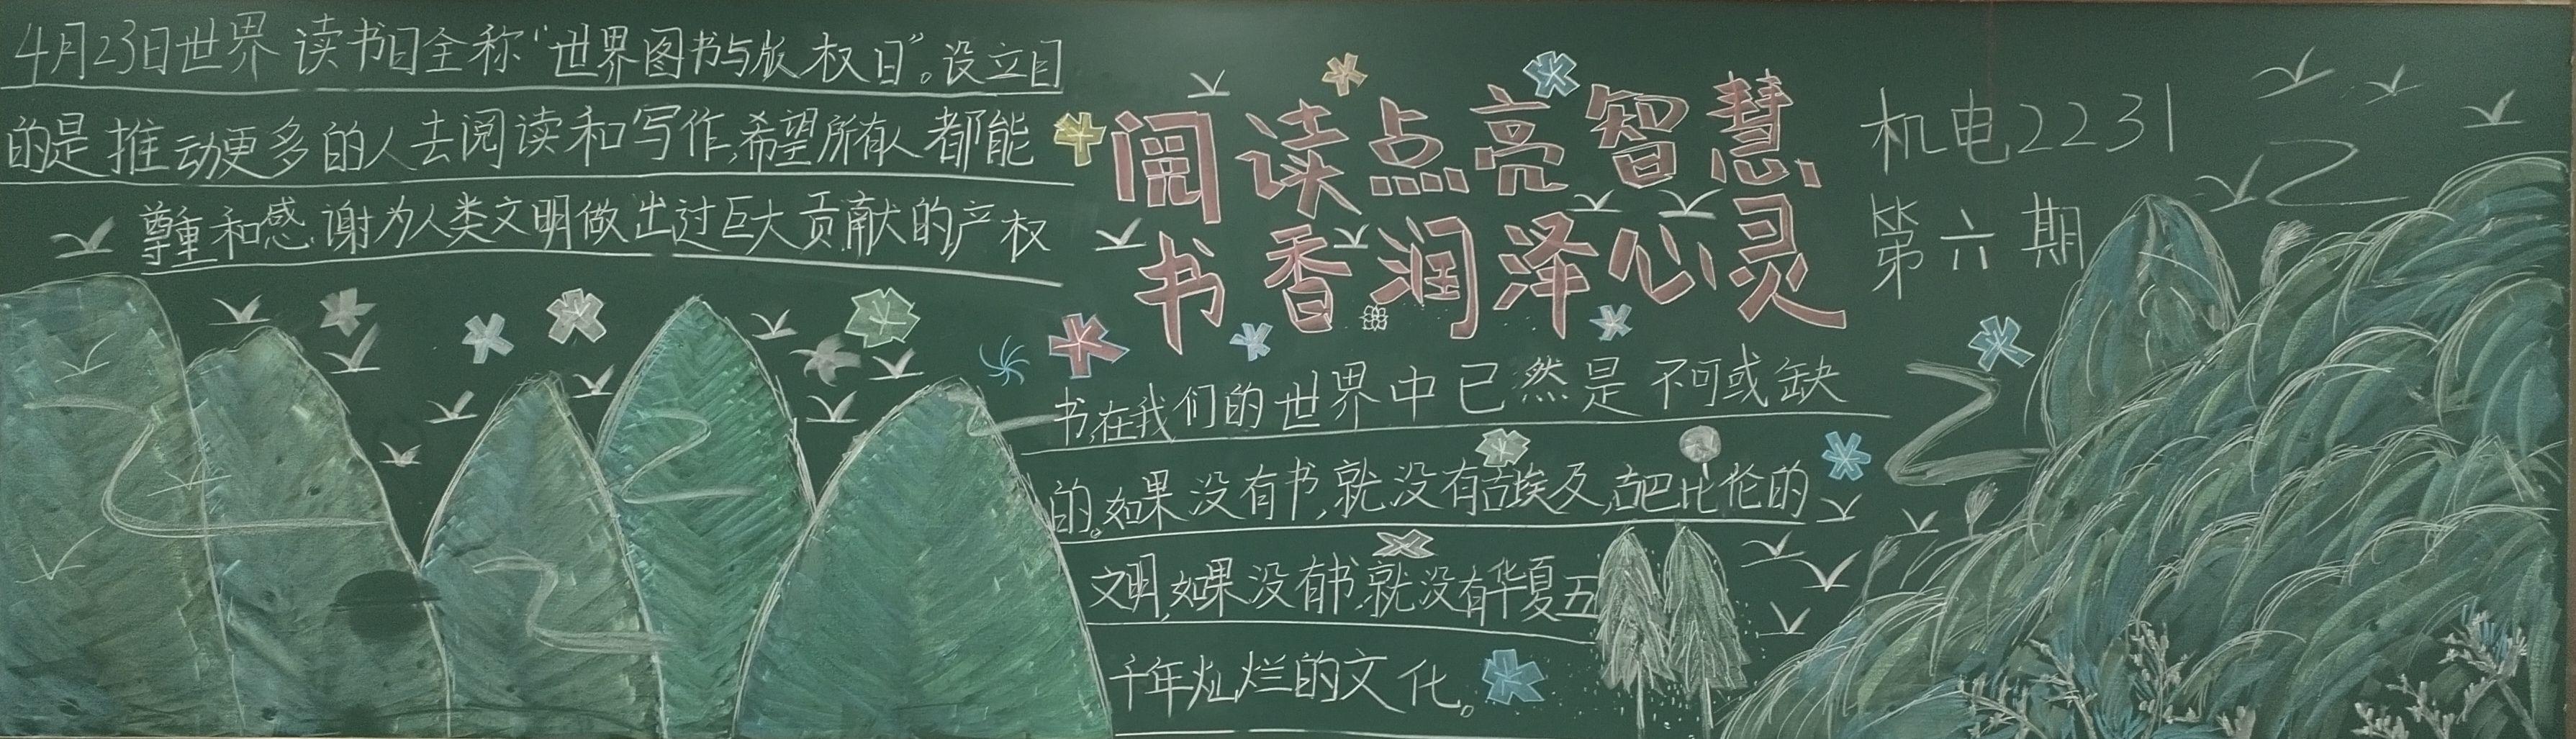 4月23日世界读书日全称“世界图书与版权日”。设立目
的是推动更多的人去阅读和写作,希望所有人都能
尊重和感谢为人类文明做出过巨大贡献的产权
阅读点亮智慧
书香润泽心灵
机电2231
第六期
书,在我们的世界中已然是不可或缺
的。如果没有书,就没有古埃及,古巴比伦的
文明,如果没有书,就没有华夏五
千年灿烂的文化。